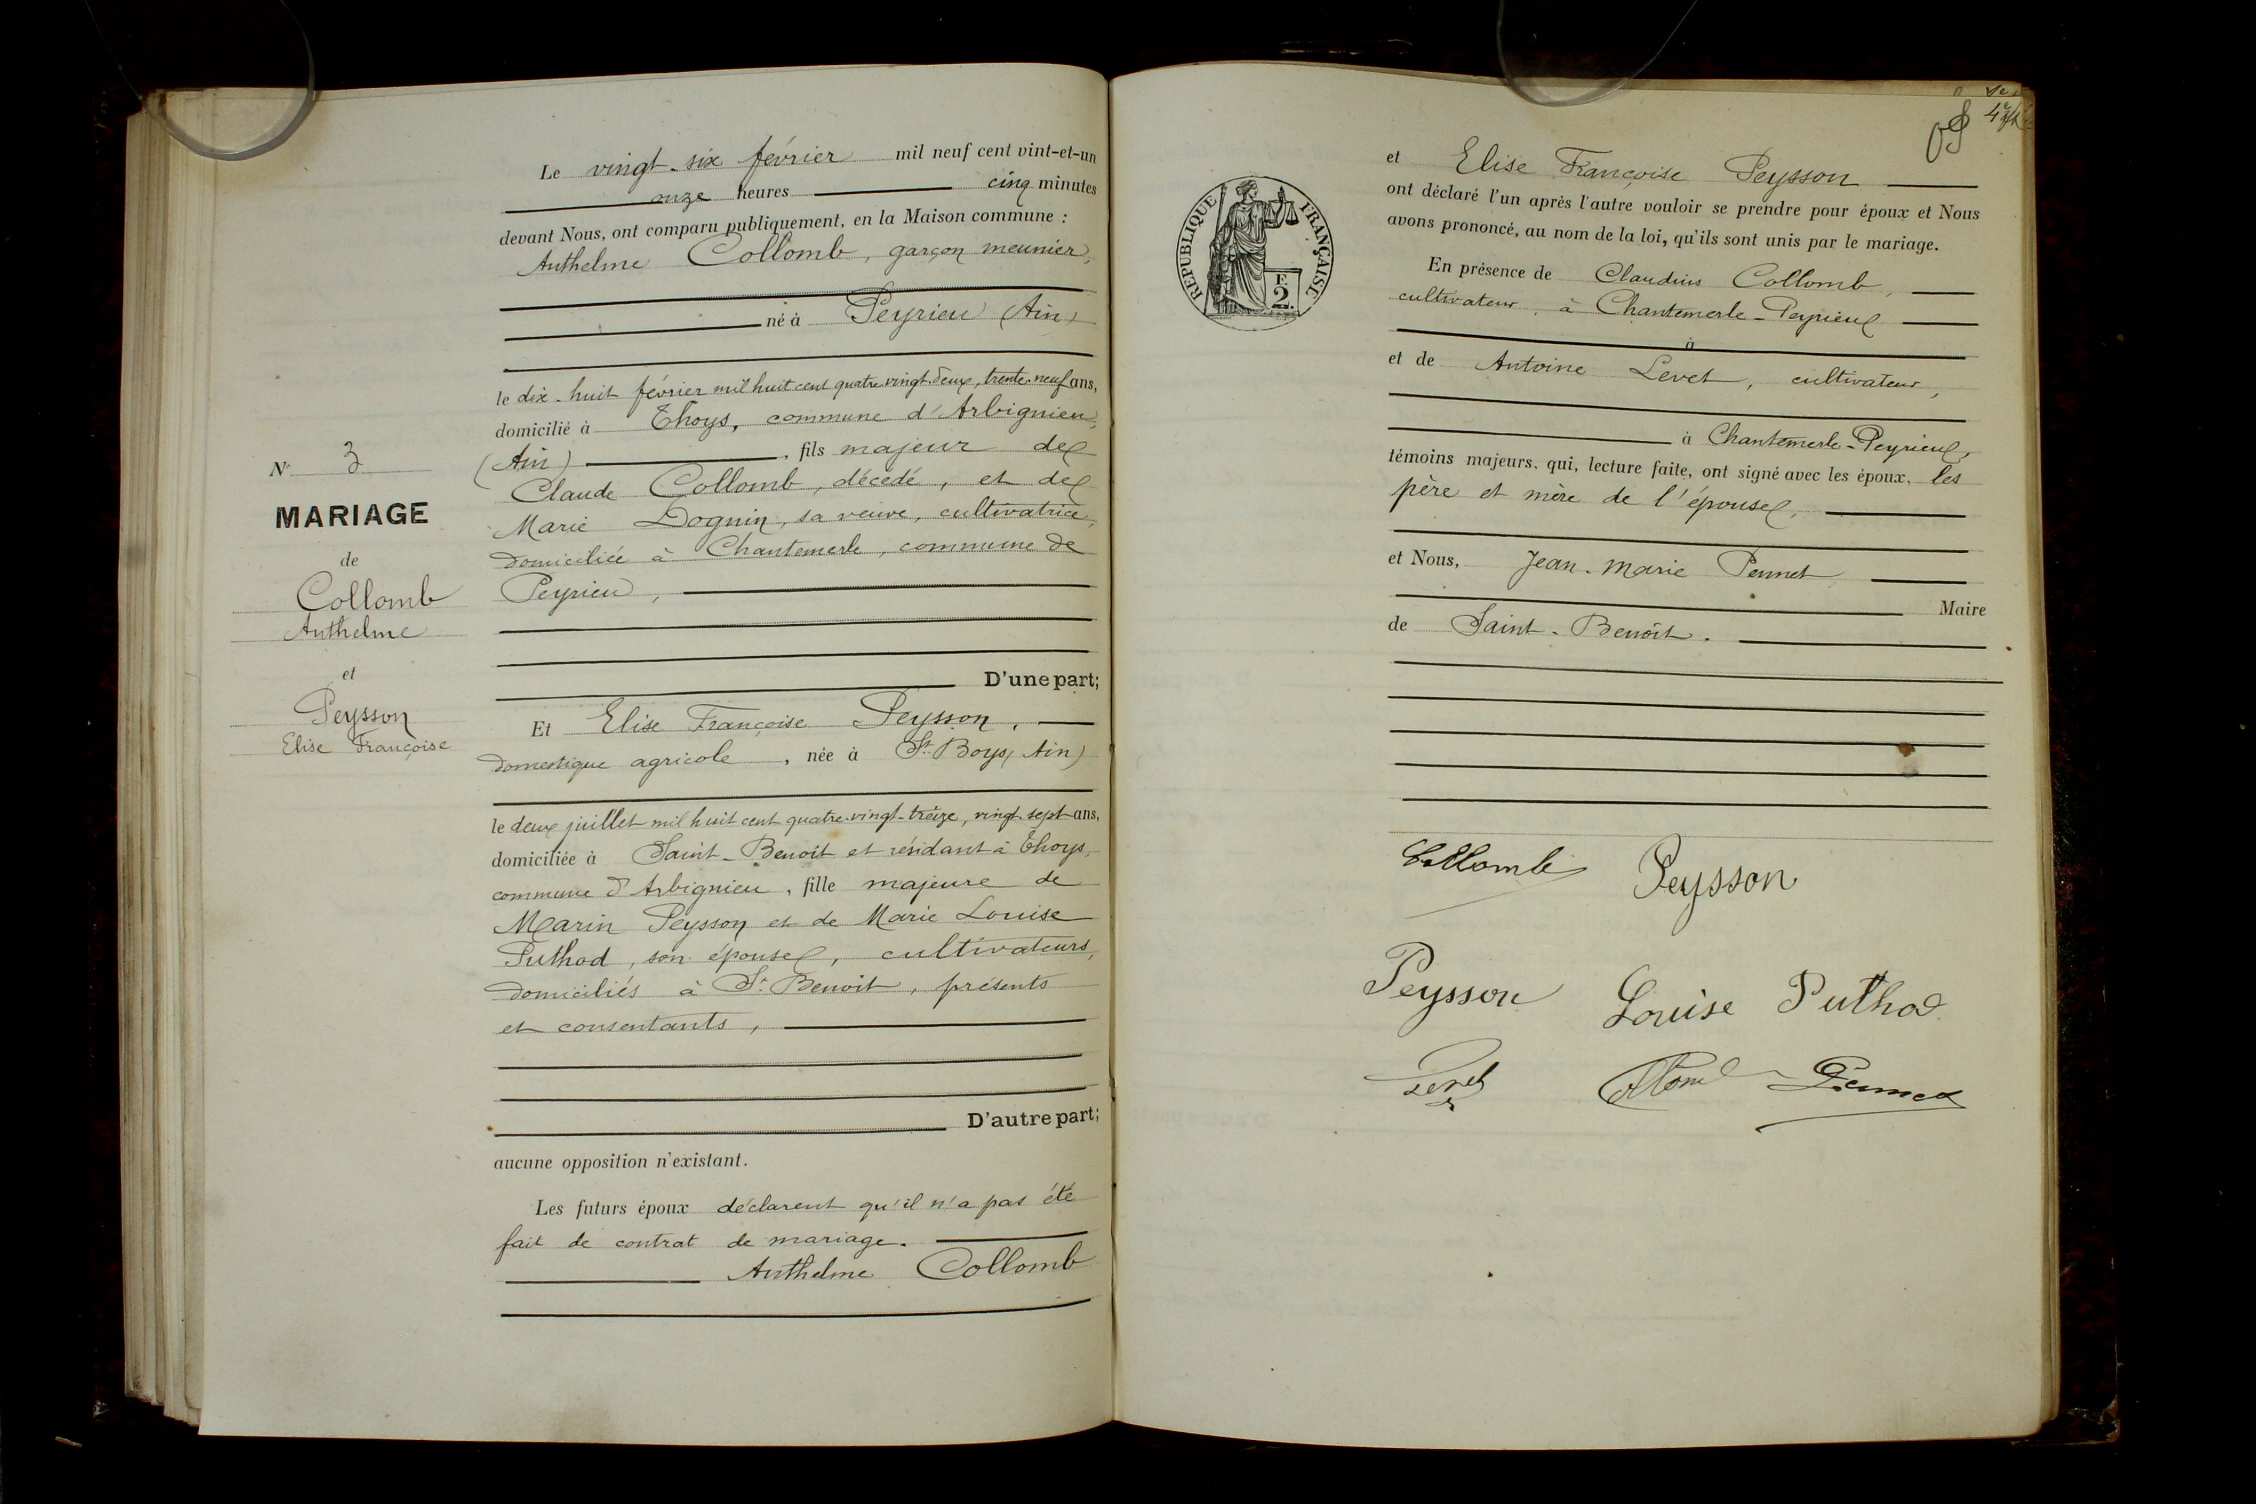 Le vingt-six février mil neuf cent vint-et-un
onze heures cinq minutes
devant Nous, ont comparu publiquement, en la Maison commune :
Anthelme Collomb, garçon meunier,
né à Peyrieu (Ain)
le dix-huit février mil huit cent quatre-vingt-deux, trente-neuf ans,
domicilié à Thoys, commune d'Arbignieu,
(Ain), fils majeur de
Claude Collomb, décédé, et de
Marie Dognin, sa veuve, cultivatrice,
domiciliée à Chantemerle, commune de
Peyrieu,
D'une part;
Et Elise Françoise Peysson,
domestique agricole, née à St Boys (Ain)
le deux juillet mil huit cent quatre-vingt-treize, vingt-sept ans,
domiciliée à Saint-Benoît et résidant à Thoys,
commune d'Arbignieu, fille majeure de
Marin Peysson et de Marie Louise
Puthod, son épouse, cultivateurs,
domiciliés à St Benoît, présents
et consentants,
D'autre part;
aucune opposition n'existant.
Les futurs époux déclarent qu'il n'a pas été
fait de contrat de mariage.
Anthelme Collomb
N° 3
MARIAGE
de
Collomb
Anthelme
et
Peysson
Elise Françoise
RÉPUBLIQUE FRANÇAISE
F
2.
et Elise Françoise Peysson
ont déclaré l'un après l'autre vouloir se prendre pour époux et Nous
avons prononcé, au nom de la loi, qu'ils sont unis par le mariage.
En présence de Claudius Collomb,
cultivateur, à Chantemerle-Peyrieu
à
et de Antoine Levet, cultivateur,
à Chantemerle-Peyrieu,
témoins majeurs, qui, lecture faite, ont signé avec les époux, les
père et mère de l'épouse,
et Nous, Jean-Marie Pennet
Maire
de Saint-Benoît.
Collomb Peysson
Peysson Louise Puthod
Levet Collomb Pennet